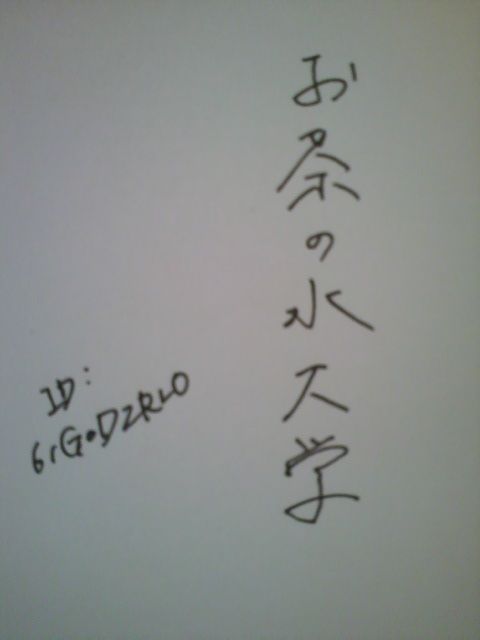 お茶の水大学
ID:
6rG•DZRLO